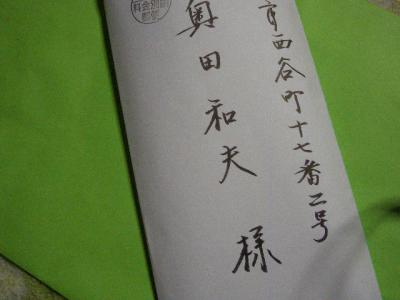 市西谷町十七番二号
奥田和夫様
料金別納
郵便